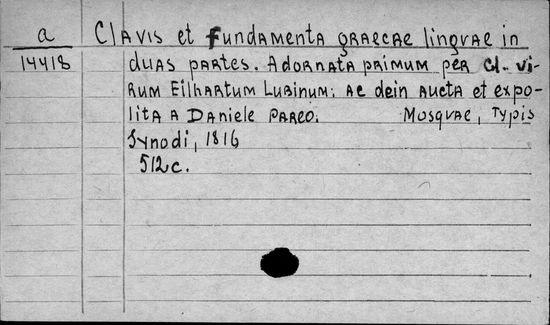 a
14418
Clavis et fundamenta graecae linguae in
duas partes. Adornata primum per Cl. vi-
rum Eilhartum Lubinum: ac dein aucta et expo-
lita a Daniele Pareo. Mosquae, Typis
Synodi, 1816
512c.